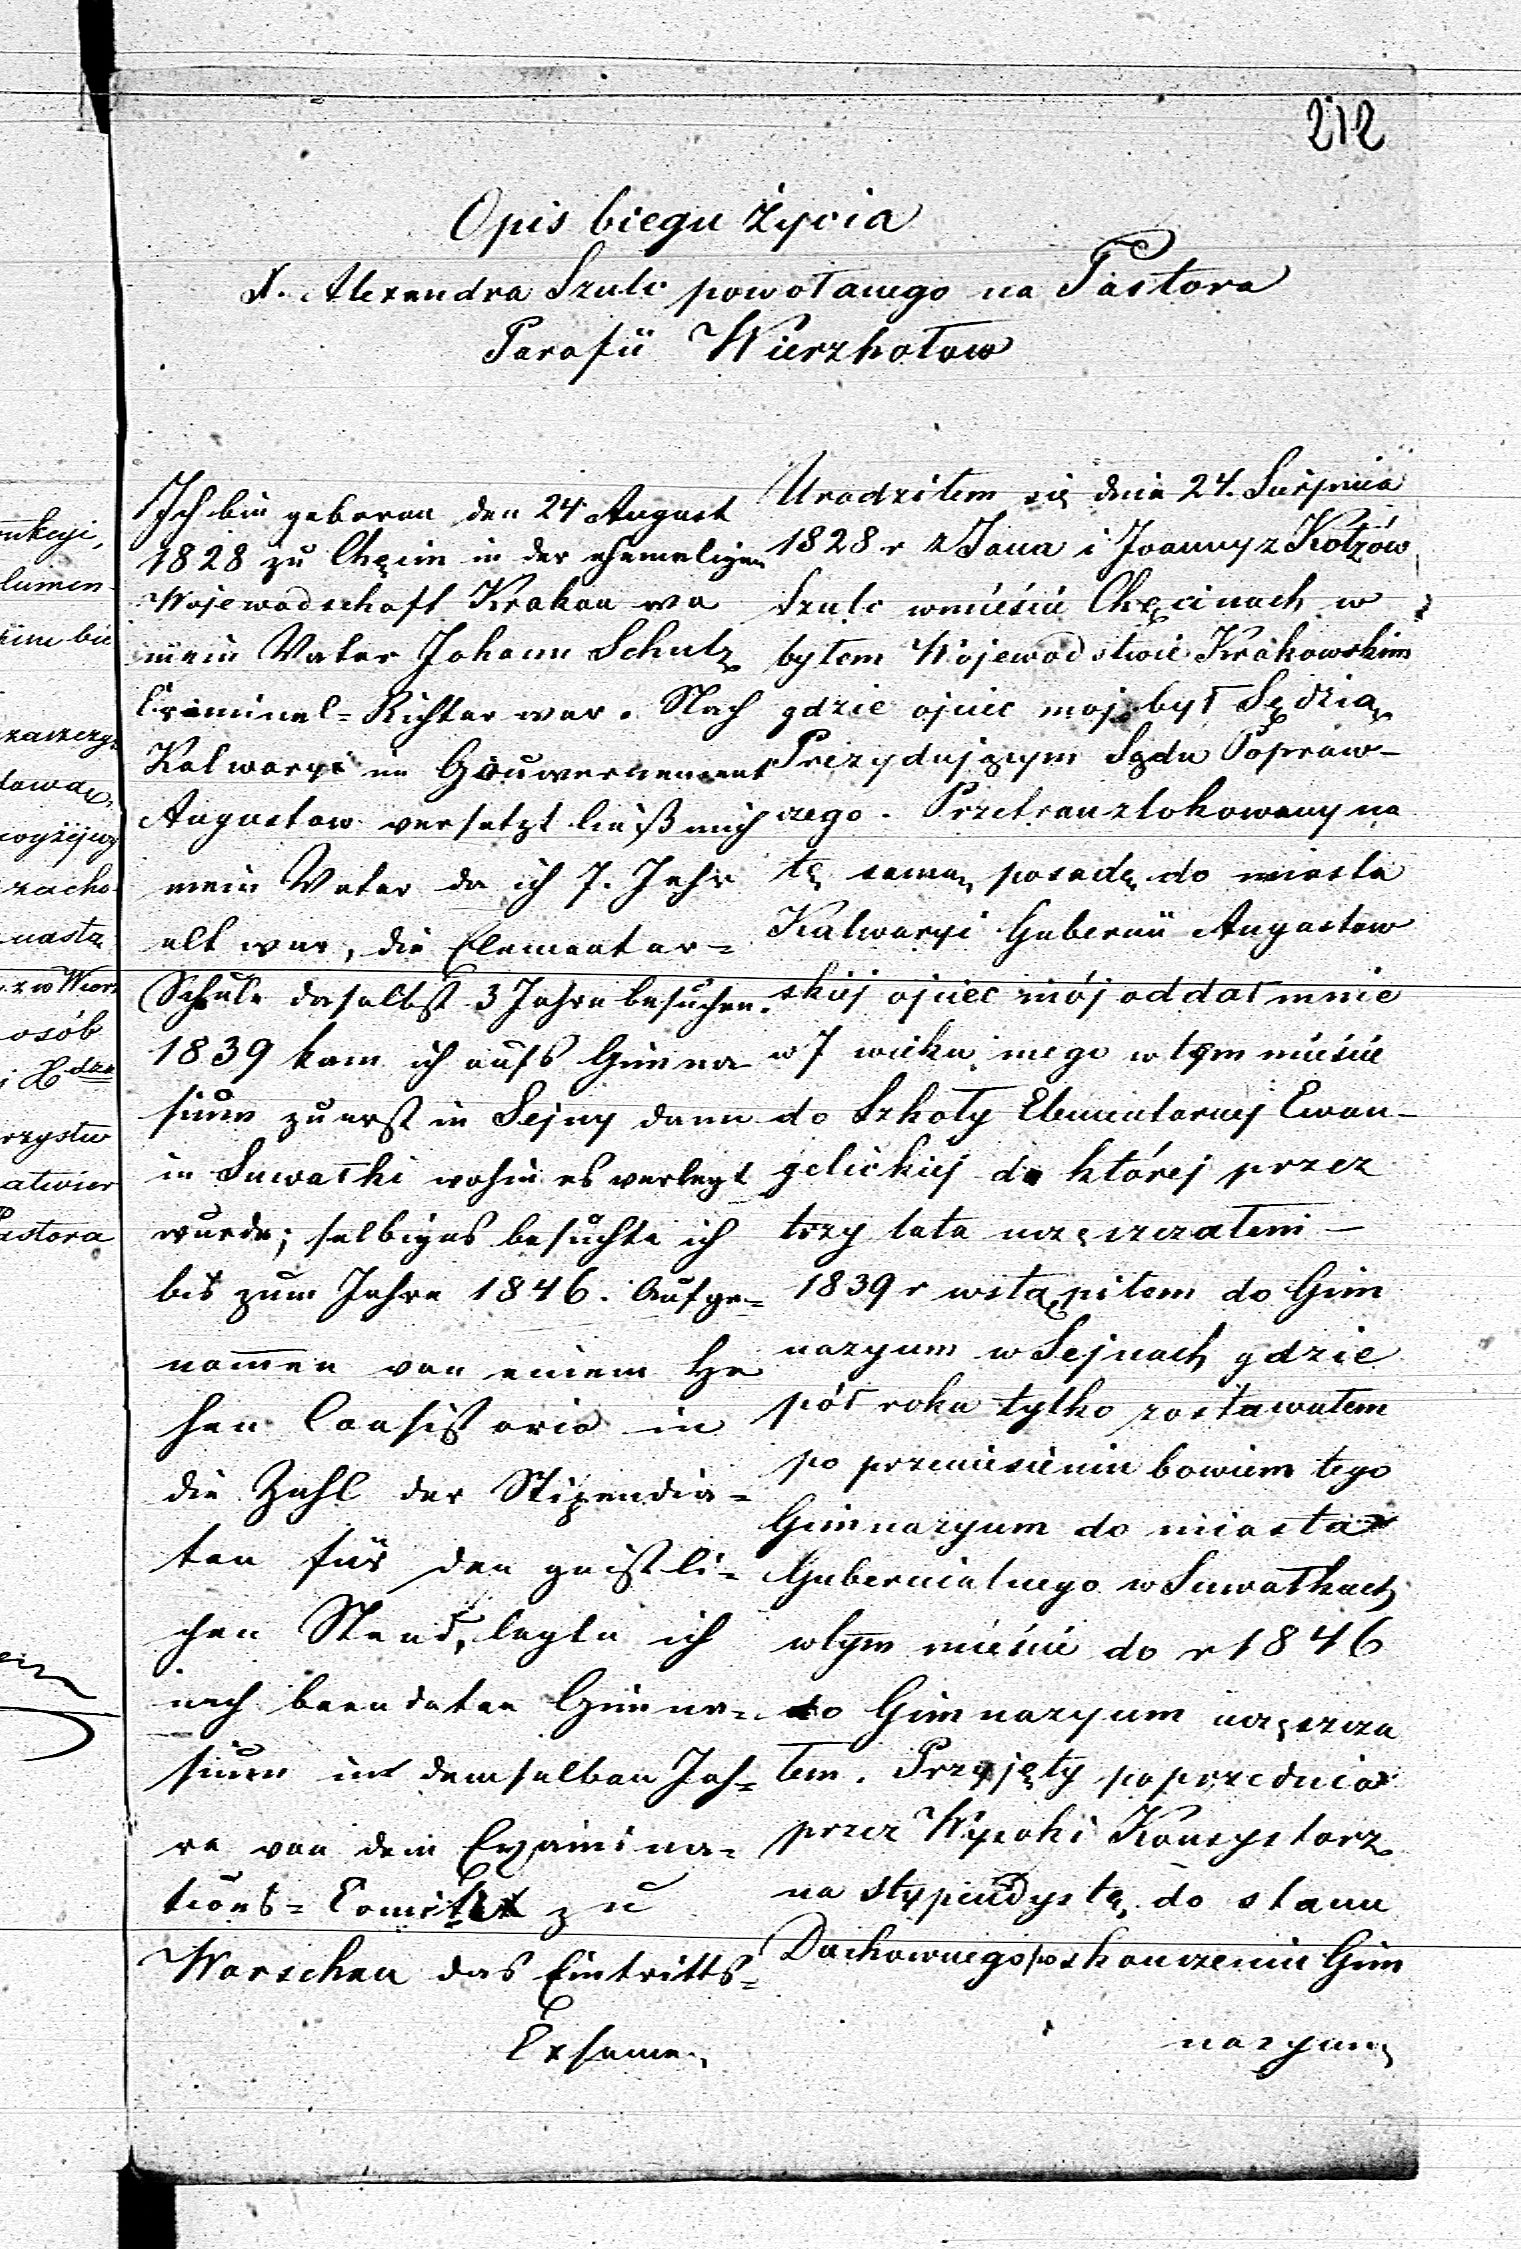 212
Opis biegu życia
X. Alexandra Szulc powołanego na Pastora
Parafii Wierzbołow
Ich bin geboren den 24 August
1828 zu Chęcin in der ehemaligen
Wojewodschaft Krakau wo
mein Vater Johann Schulz
Criminal=Richter war. Nach
Kalwaryi im Gouvernement
Augustow versetzt ließ mich
mein Vater da ich 7. Jahr
alt war, die Elementar=
Schule daselbst 3 Jahre besuchen.
1839 kam ich aufs Gimna
sium zuerst in Sejny dann
in Suwałki wohin es verlegt
wurde; selbiges besuchte ich
bis zum Jahre 1846. Aufge=
nom̅en von einem Ho
hen Consistorio in
die Zahl der Stipendia=
ten für den geistli=
chen Stand, legte ich
nach beendeten Gimna=
sium in demselben Jah=
re von dem Examina=
tions=Comitet zu
Warschau das Eintritts=
Examen
Urodziłem się dnia 24. Sierpnia
1828 r z Jana i Joanny z Kotzów
Szulc w mieście Chęcinach w
byłem Wojewodstwie Krakowskim
gdzie ojciec moj był Sędzią
Prezydującym Sądu Popraw-
czego. Przetranzlokowany na
tę samą posadę do miasta
Kalwaryi Gubernii Augustow
skiej ojciec mój oddał mnie
w 7 wieku mego w tym mieście
do Szkoły Elementarnej Ewan-
gelickiej do której przez
trzy lata uczęszczałem -
1839 r wstąpiłem do Gim
nazyum w Sejnach gdzie
pół roku tylko zostawałem
po przeniesieniu bowiem tego
Gimnazyum do miasta
Gubernialnego w Suwałkach
w tym mieście do r 1846
do Gimnazyum uczęszcza
łem. Przyjęty poprzednio
przez Wysoki Konsystorz
na stypendystę do stanu
Duchownego po skończeniu Gim
nazyum
unkcyi,
lumen-
zacho-
nastą
z w Wierz
osób
rzystw
atwier
Pastora